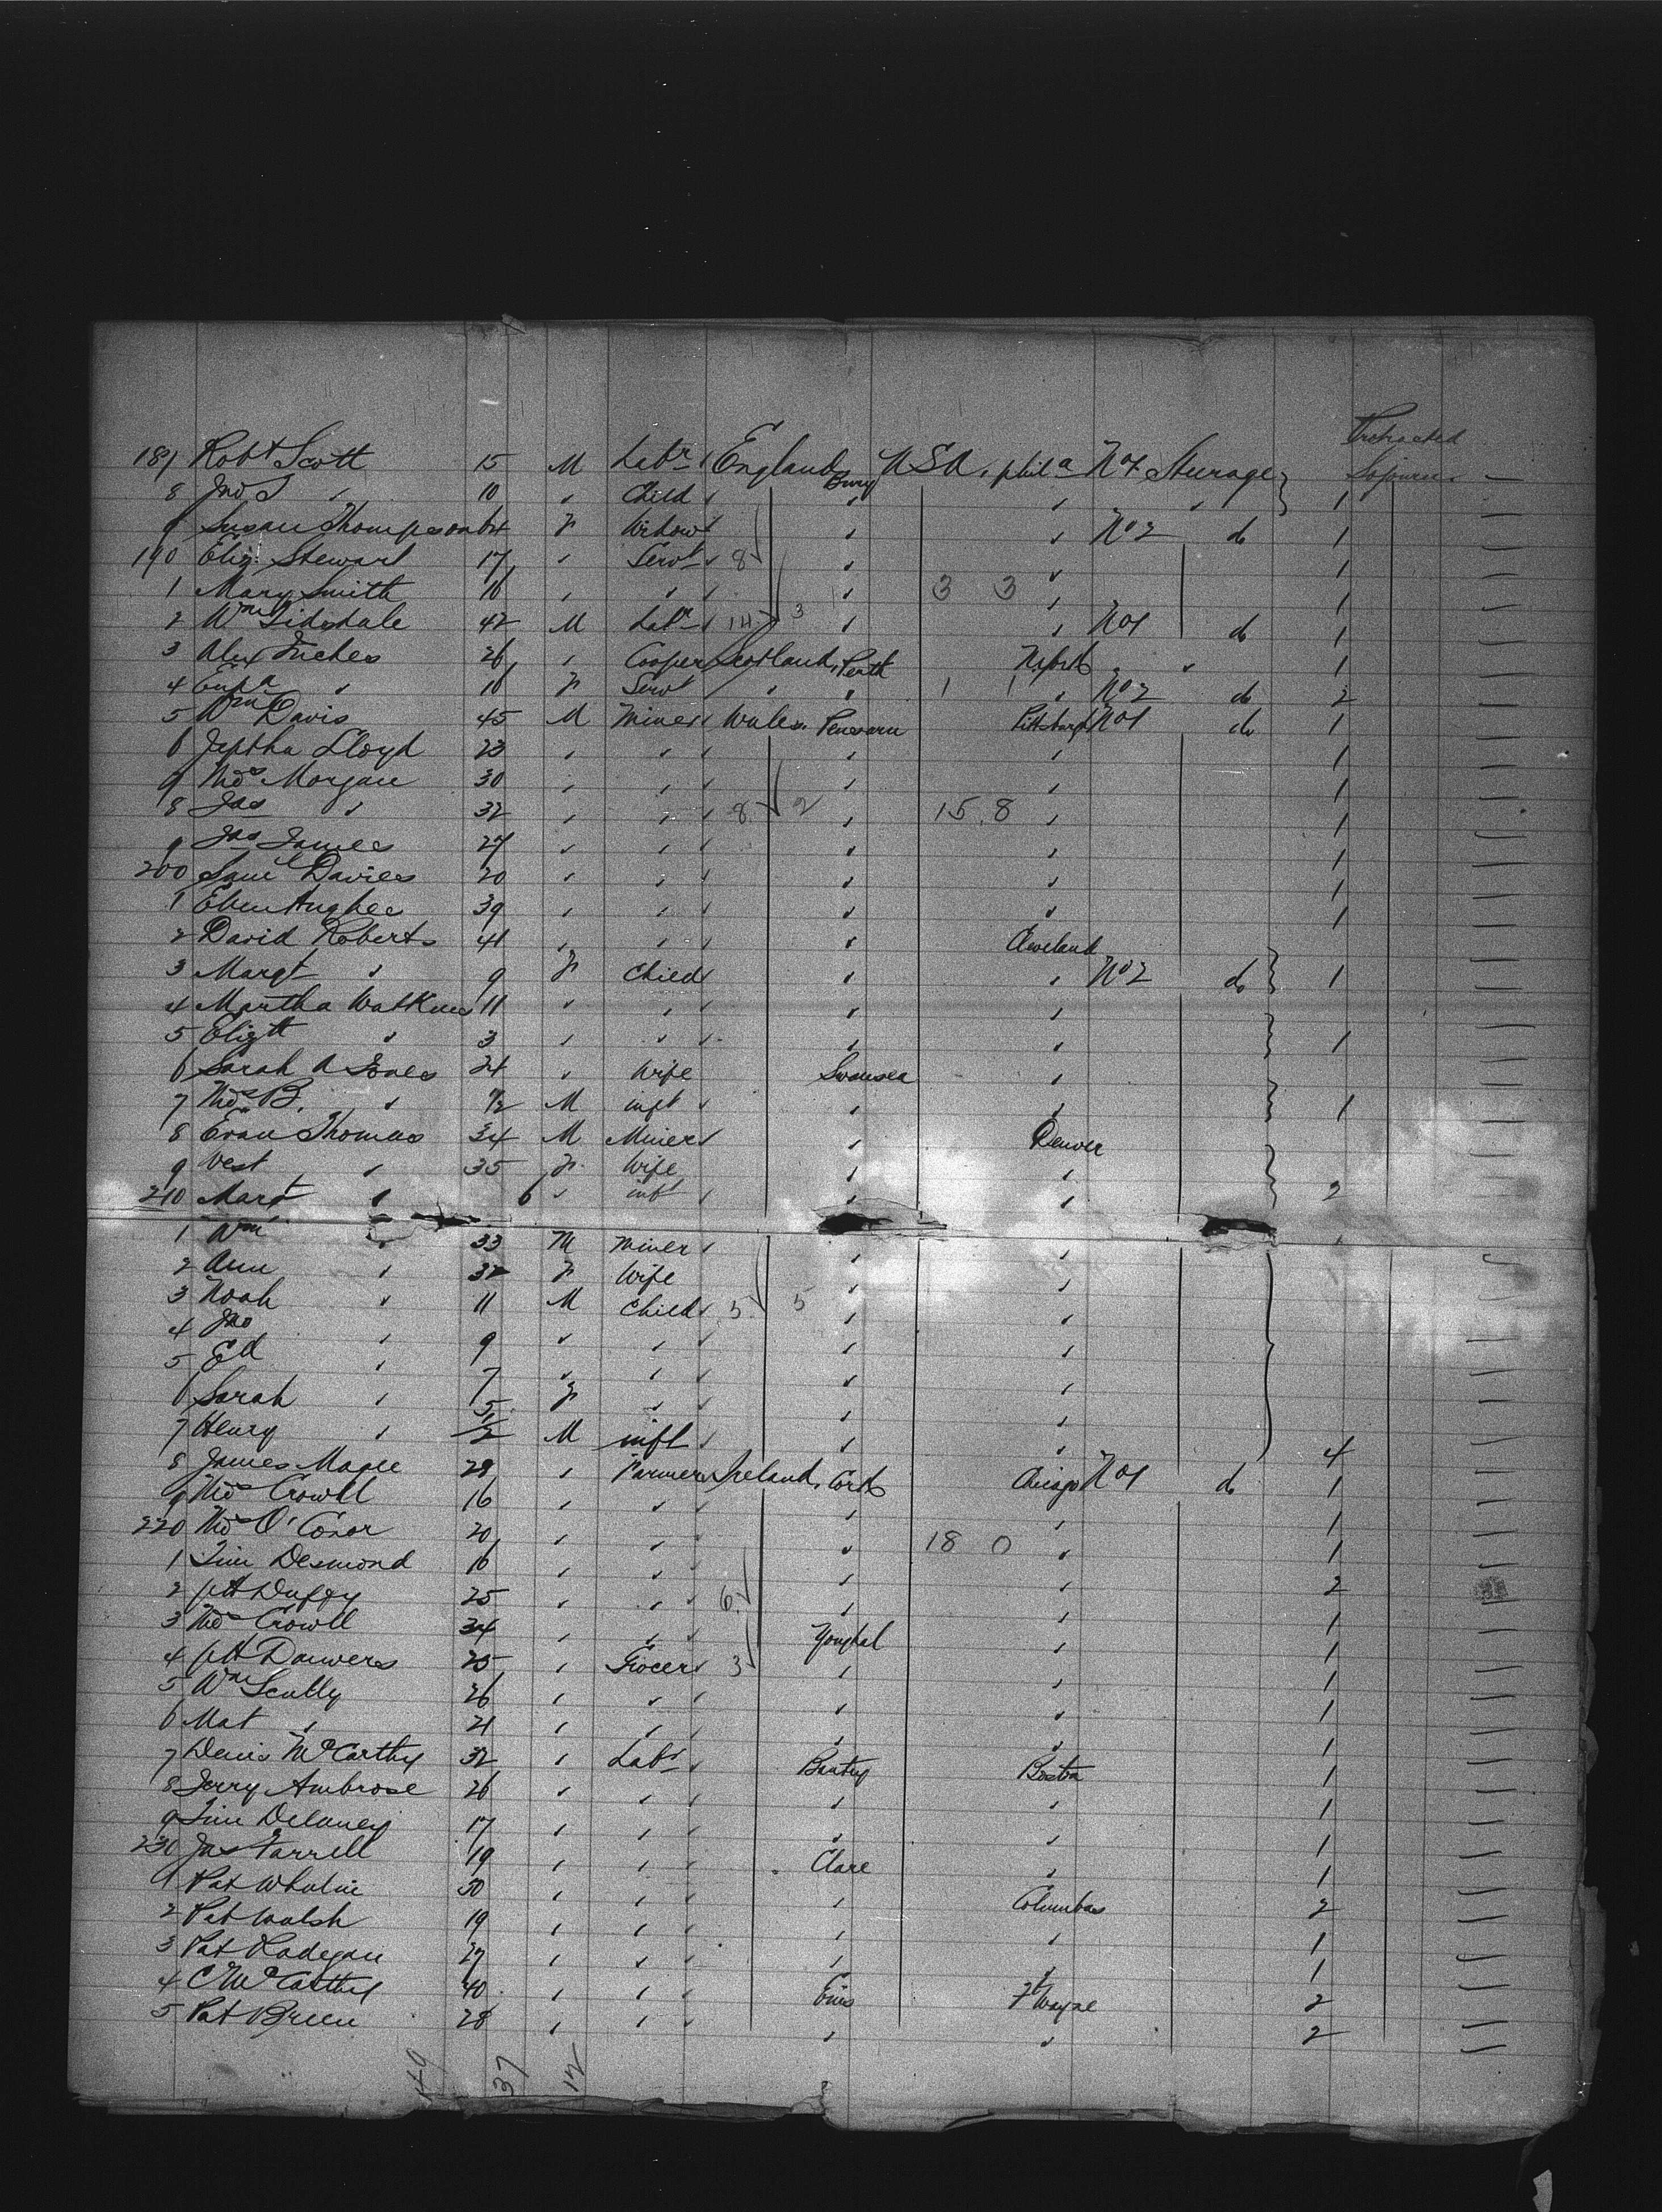 Protracted
187 Robt Scott 15 M Labr England Bury USA, phila No1 Steerage } Sojourn —
8 Jno S " 10 " Child " " " " 1 —
9 Susan Thompson 64 F Widow " " No2 do 1 —
190 Eliz. Stewart 17 " Servt 8 " " 1 —
1 Mary Smith 16 " " " 3 3 " 1 —
2 Wm Tidsdale 42 M Labr 14 3 " " No1 do 1 —
3 Alex Inches 26 " Cooper Scotland, Perth " " 1 —
4 " 16 F Servt " " 1 1 " No2 do 2 —
5 Wm Davis 45 M Miner Wales. Pittsburgh No1 do 1 —
6 Jeptha Lloyd 23 " " " " 1 —
7 Thos Morgan 30 " " " " 1 —
8 Jas " 32 " " 8 2 " 15. 8 " 1 —
9 Jas James 27 " " " " 1 —
200 Saml Davies 20 " " " " 1 —
1 Eben Hughes 39 " " " " 1 —
2 David Roberts 41 " " " Cleveland
3 Margt " 9 F Child " " No2 do } 1 —
4 Martha Watkins 11 " " " " —
5 Elizth " 3 " " " " } 1 —
6 Sarah A Jones 24 " Wife Swansea " —
7 Thos B. " 1/2 M inft " " } 1 —
8 Evan Thomas 34 M Miner " Denver
9 Vest " 35 F Wife " "
210 Margt " 6 " inft " " } 2
1 Wm " 33 M Miner " "
2 Ann " 32 F Wife " "
3 Noah " 11 M Child 5 5 " "
4 Jno " 9 " " " "
5 Ed " 7 " " " " —
6 Sarah " 5 F " " " —
7 Henry " 1/2 M inft " " } 4 —
8 James Magee 28 " Farmer Ireland, Cork Chicago No1 do 1 —
9 Thos Crowll 16 " " " " 1 —
220 Thos O'Conor 20 " " " 18 0 " 1 —
1 Tim Desmond 16 " " " " 2 —
2 Pt Duffy 25 " " 6 " " 1 —
3 Thos Crowll 34 " " Youghal " 1 —
4 Pt Danvers 25 " Grocer 3 " " 1 —
5 Wm Scully 26 " " " " 1 —
6 Mat " 21 " " " " 1 —
7 Denis McCarthy 32 " Labr Bantry Boston 1 —
8 Jerry Ambrose 26 " " " " 1 —
9 Tim Delaney 17 " " " " 1 —
230 Jas Farrell 19 " " Clare " 1 —
1 Pat Whelin 30 " " " Columbus 2 —
2 Pat Walsh 19 " " " " 1 —
3 Pat Hadegan 27 " " " " 1 —
4 C McCarthy 40 " " Enis Ft Wayne 2 —
5 Pat Breen 28 " " " " 2 —
149 37 12